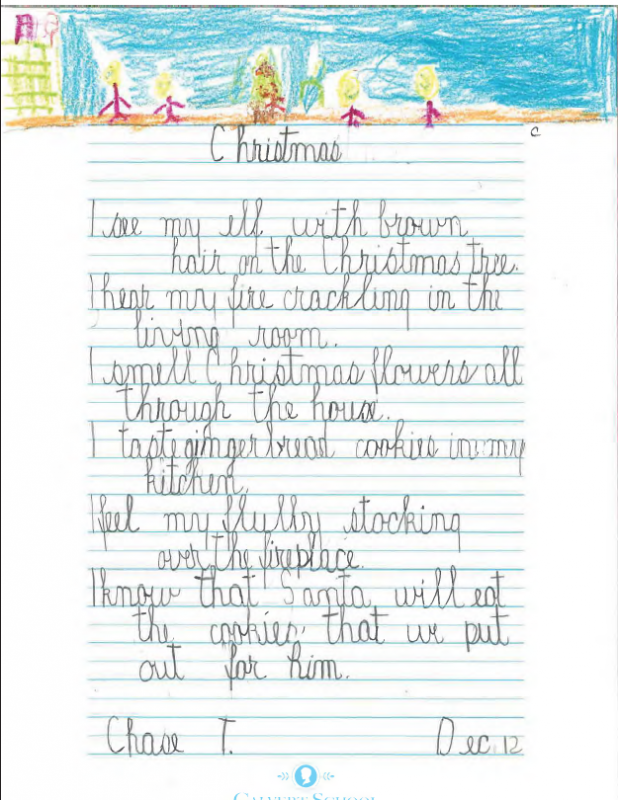 Christmas
c
I see my elf with brown
hair on the Christmas tree.
I hear my fire crackling in the
living room.
I smell Christmas flowers all
through the house.
I taste gingerbread cookies in my
kitchen.
I feel my fluffy stocking
over the fireplace.
I know that Santa will eat
the cookies that we put
out for him.
Chase T. Dec. 12
CALVERT SCHOOL